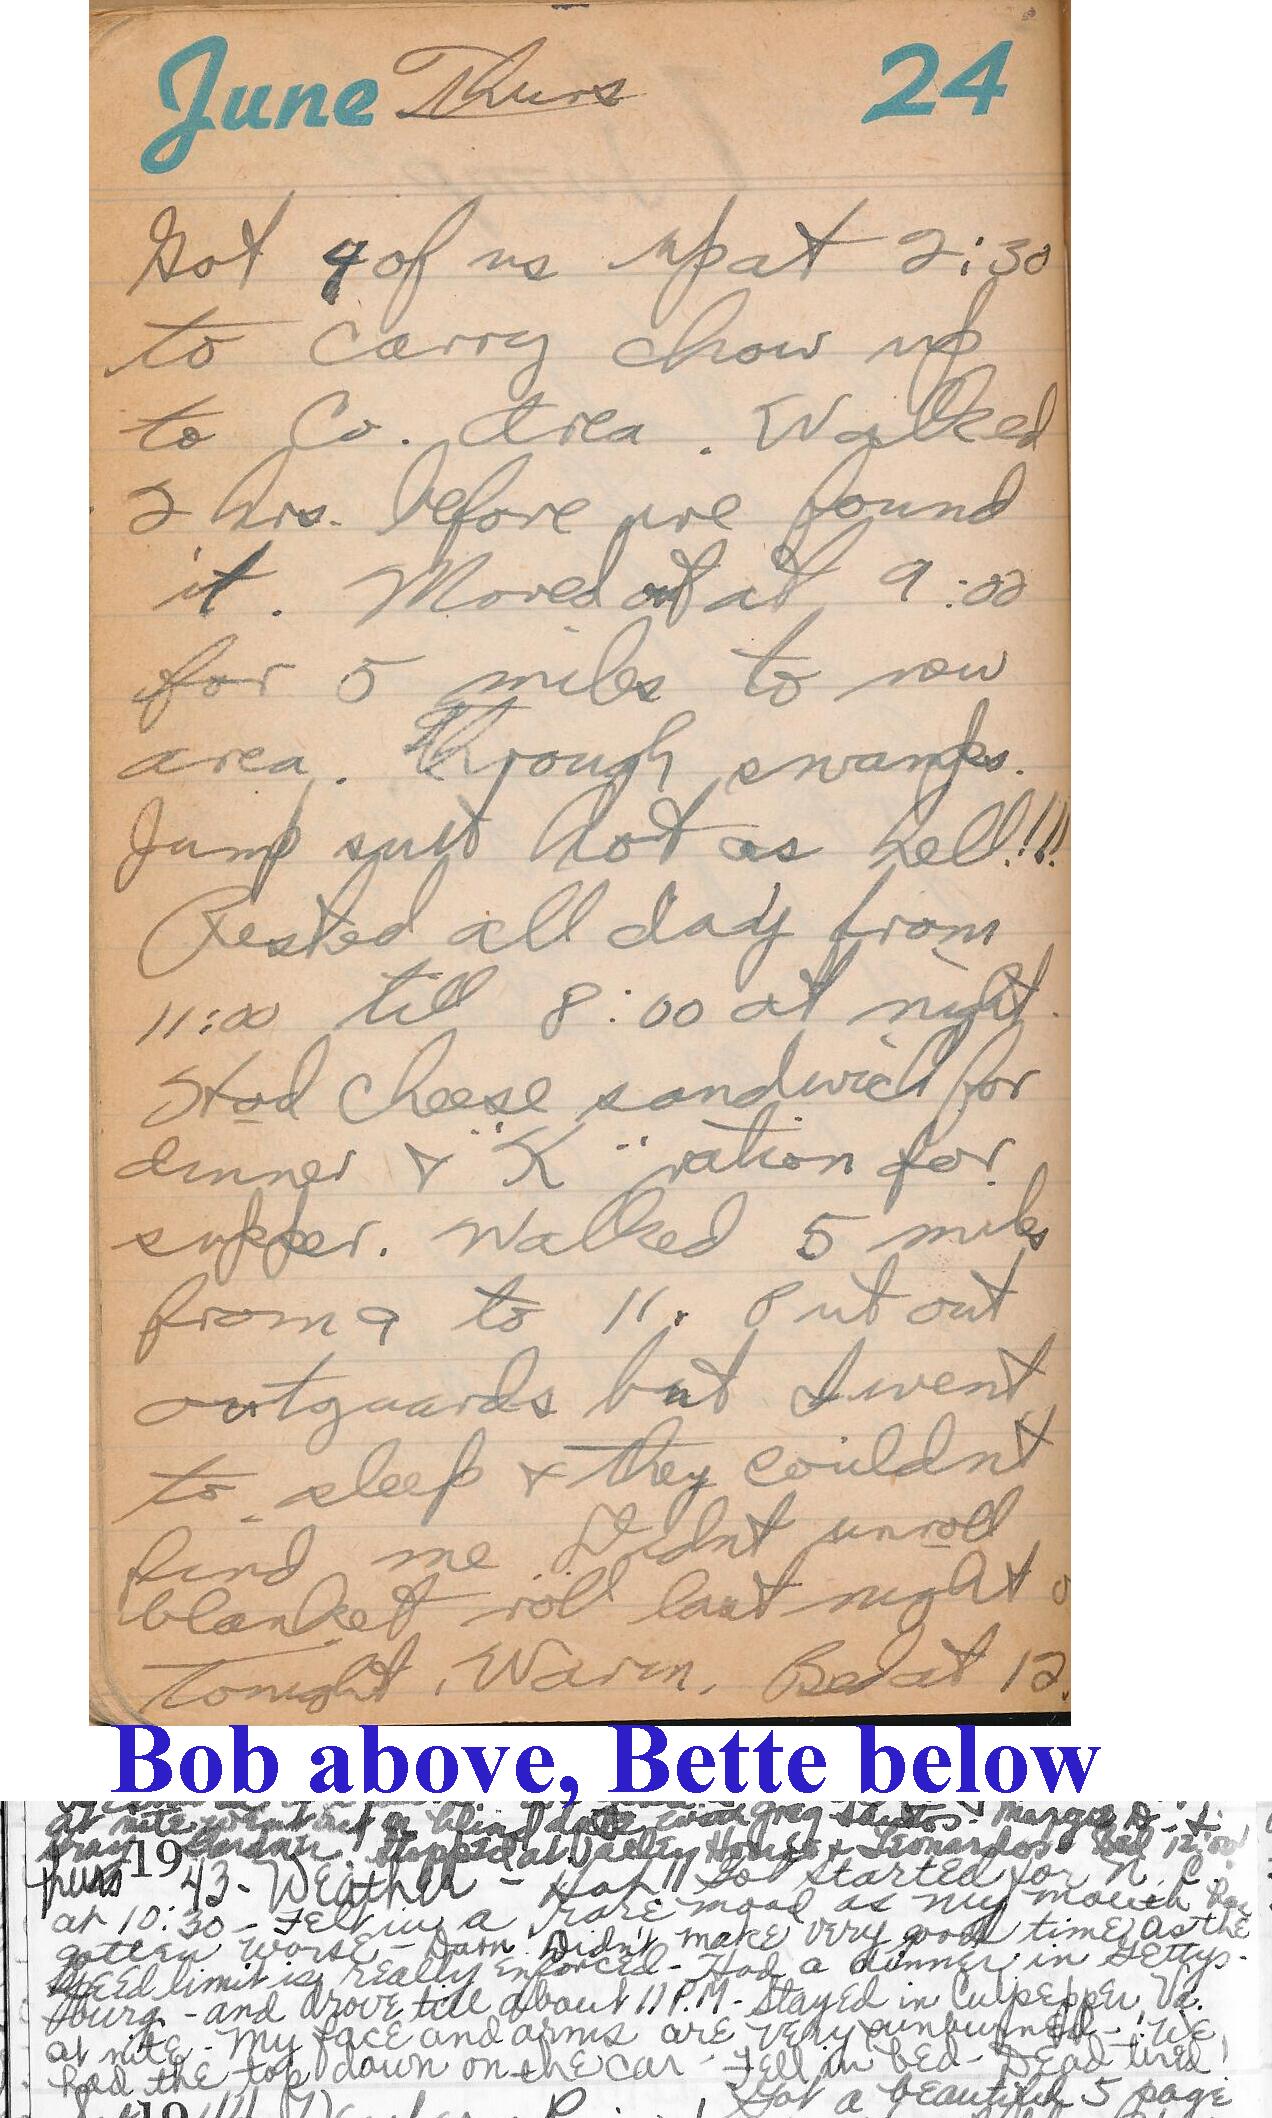 June Thurs 24
Got 4 of us up at 2:30
to carry chow up
to Co. Area. Walked
2 hrs. before we found
it. Moved out at 9:00
for 5 miles to new
area. Through swamps.
Jump suit hot as hell!!!
Rested all day from
11:00 till 8:00 at night.
Had cheese sandwich for
dinner & "K" ration for
supper. Walked 5 miles
from 9 to 11. Put out
outguards but I went
to sleep & they couldnt
find me Didnt unroll
blanket roll last night o
Tonight. Warm. Bed at 12.
Bob above, Bette below
at nite went out on blind date with Greg Santos - Margie D. &
Gardner. Stopped at Valley House & Leonardos. Bed 12:00
Thurs 19 43 - Weather - Hot!! Got started for N.C.
at 10:30 - Felt in a rare mood as my mouth has
gotten worse - Darn. Didn't make very good time, as the
speed limit is really enforced - Had a dinner in Gettys-
burg - and drove till about 11 P.M. - Stayed in Culpepper Va.
at nite - My face and arms are very sunburned - We
had the top down on the car - Fell in bed - Dead tired!
19
Got a beautiful 5 page